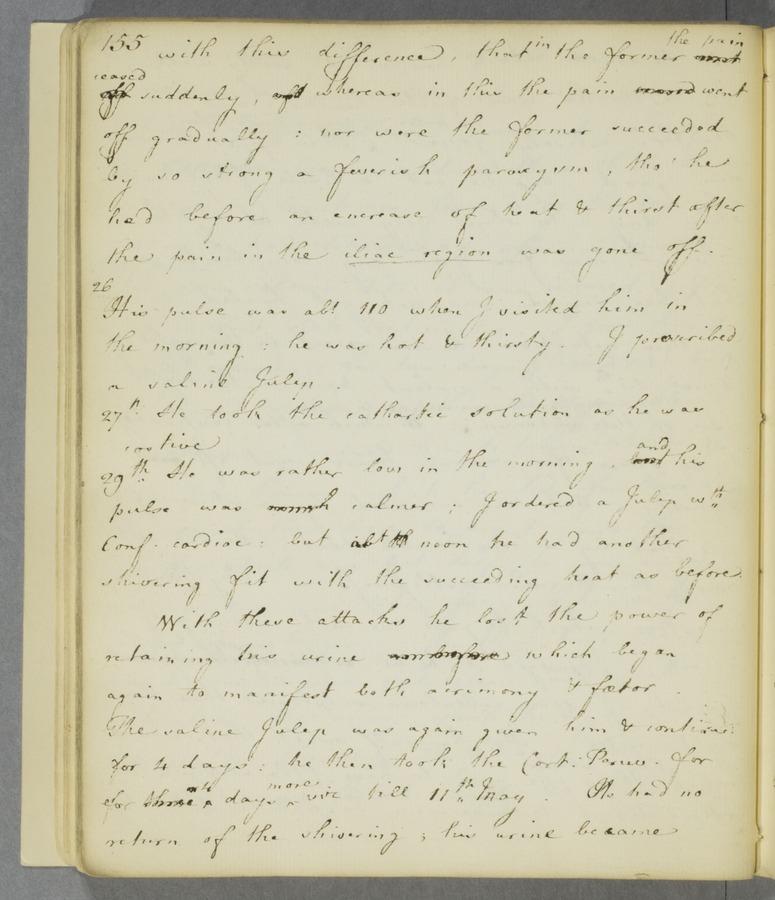 155 with this difference, that in the former the pain
ceased suddenly, whereas in this the pain went
off gradually : nor were the former succeeded
by so strong a feverish paroxysm, tho' he
had before an encrease of heat & thirst after
the pain in the iliac region was gone off.
26
His pulse was abt 110 when I visited him in
the morning : he was hot & thirsty. I prescribed
a saline Julep.
27th He took the cathartic solution as he was
costive
29th He was rather low in the morning, and his
pulse was calmer ; I ordered a Julep wth
Conf. cardiac : but abt noon he had another
shivering fit with the succeeding heat as before.
With these attacks he lost the power of
retaining his urine which began
again to manifest both acrimony & fœtor.
The saline Julep was again given him & continued
for 4 days : he then took the Cort: Peruv. for
for days more viz till 11th May. He had no
return of the shivering ; his urine became